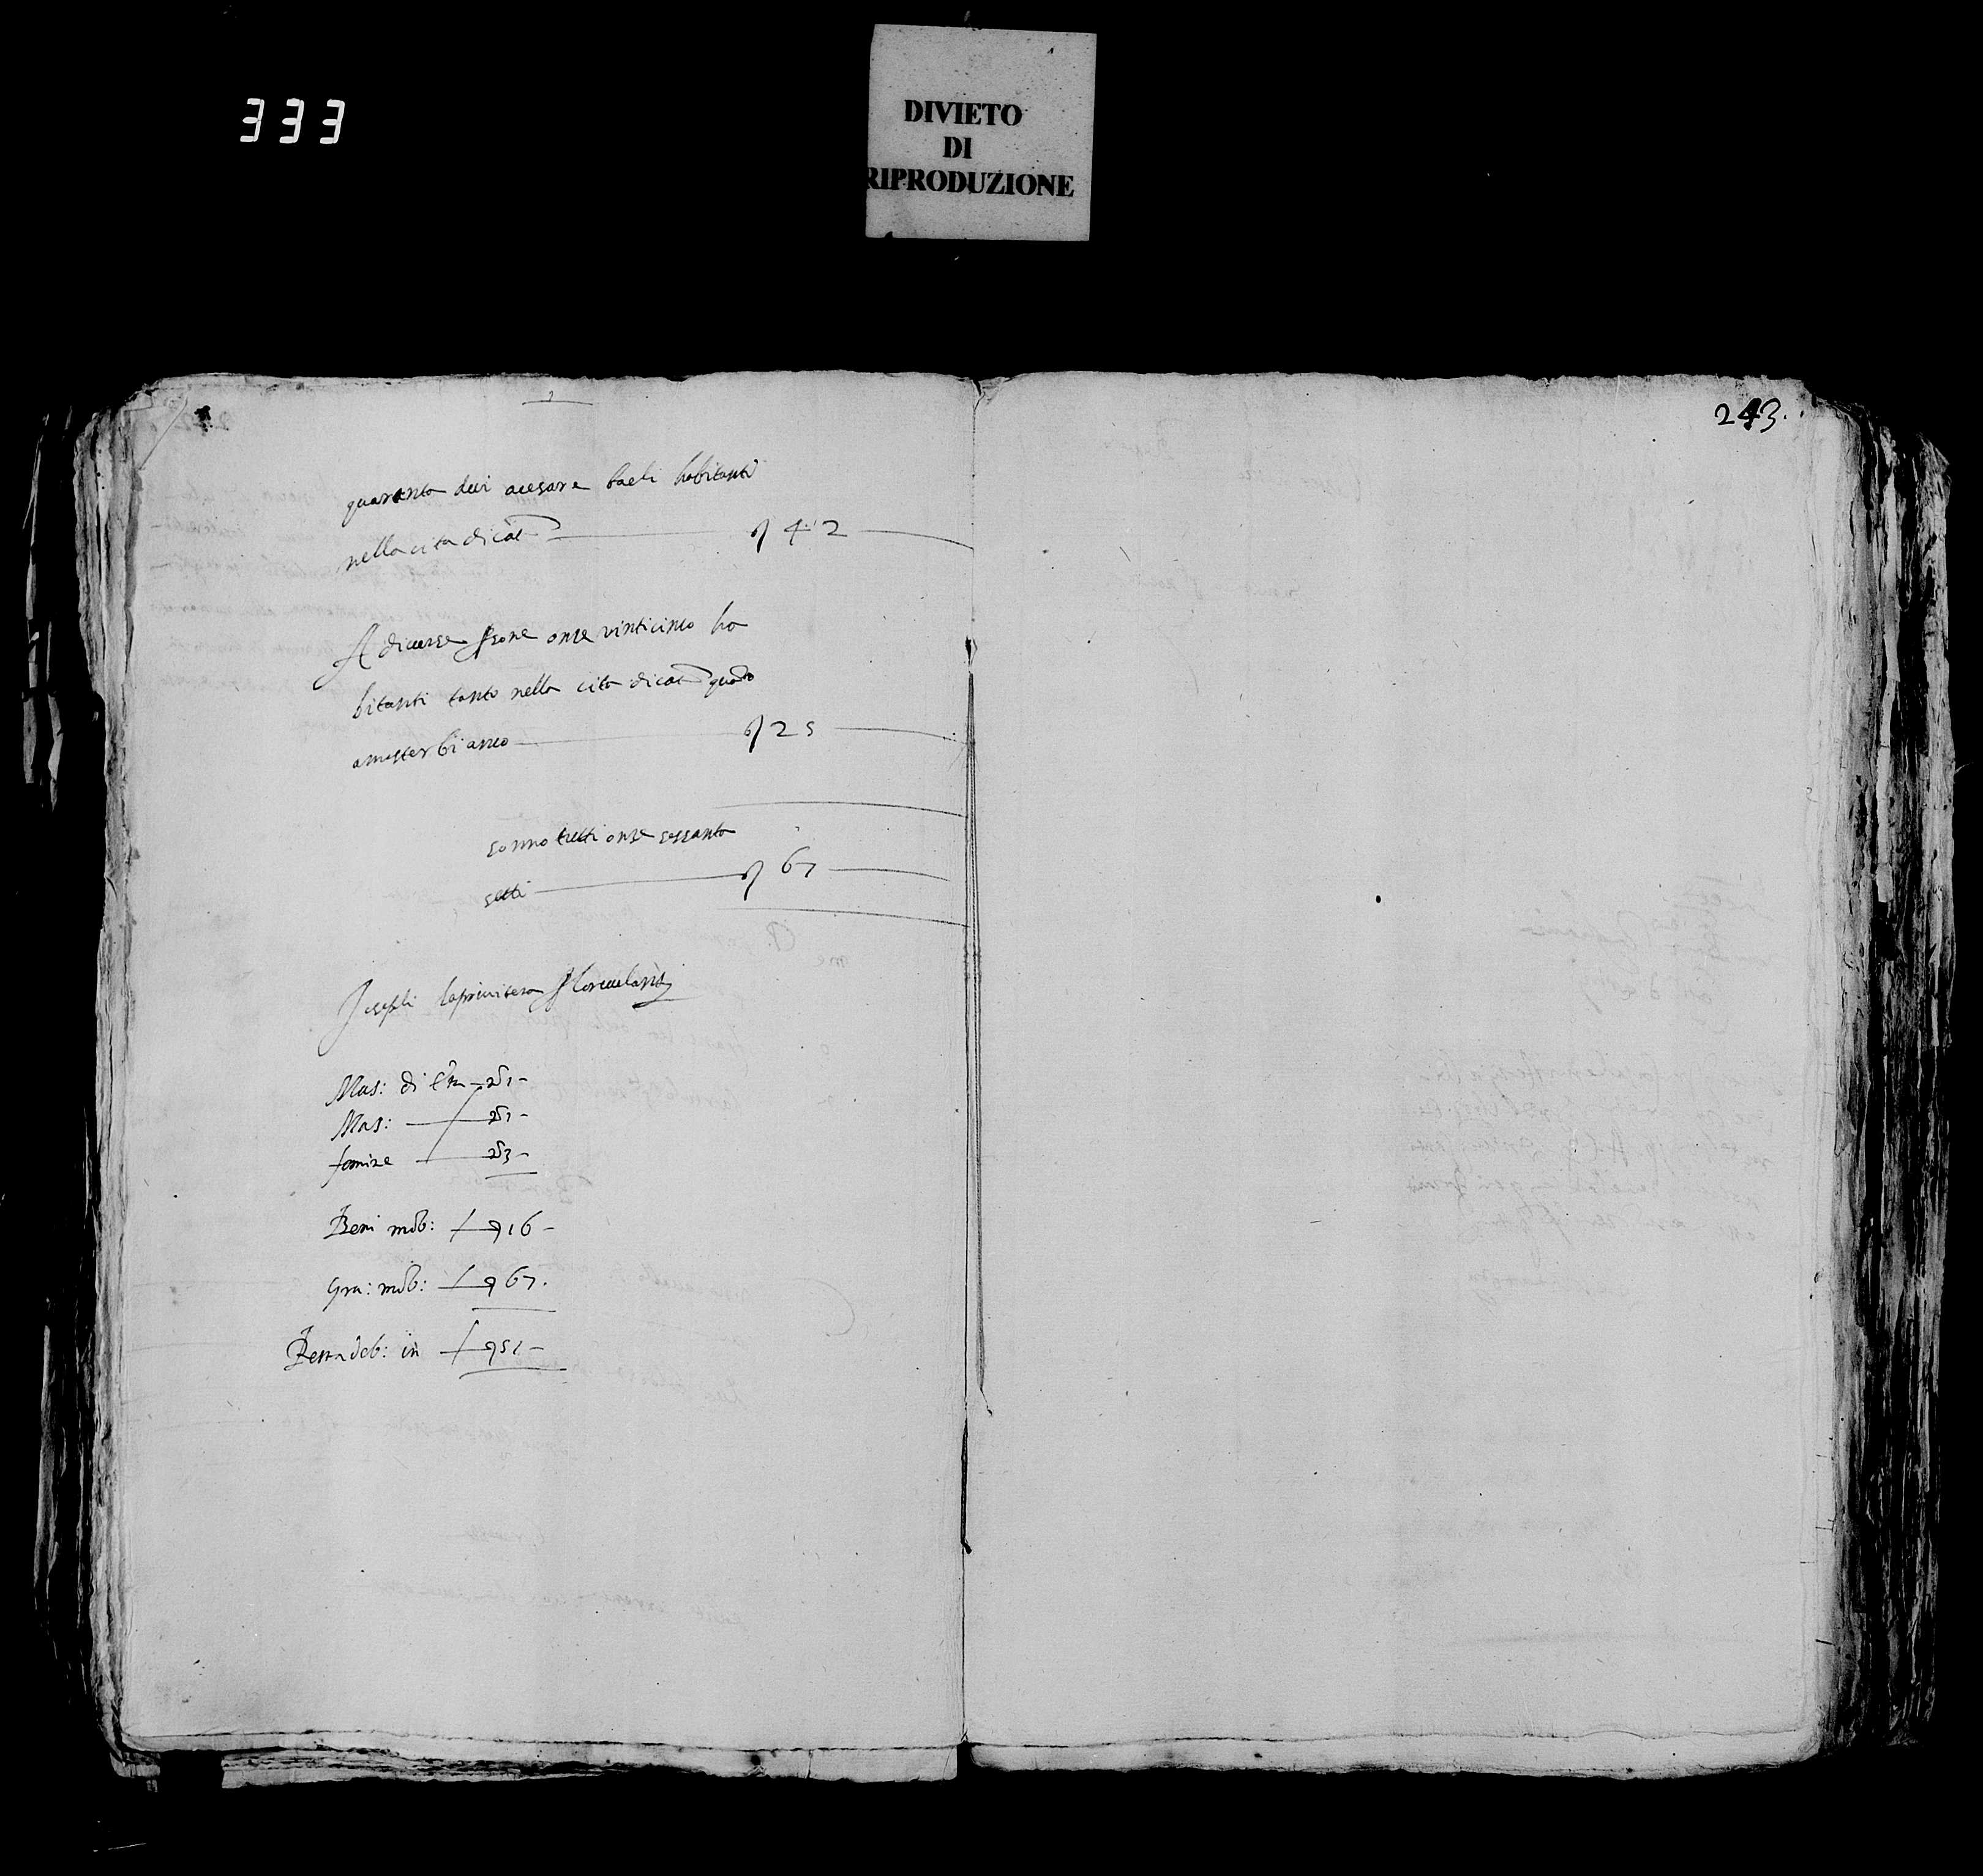 333
DIVIETO
DI
RIPRODUZIONE
243.
quaranta dui acesare baeli habitanti
nella cita di cat 42
A diverse onze vinticinco ha
bitanti tanto nella cita di cat quanto
amosterbianco 25
sonno tutti onze sessanta
setti 67
Joseph laprivitera
Mas: di 1 -
Mas: 1 -
femine 3 -
Beni mob: 16 -
Gra: mob: 67.
Resta deb: in 51 -